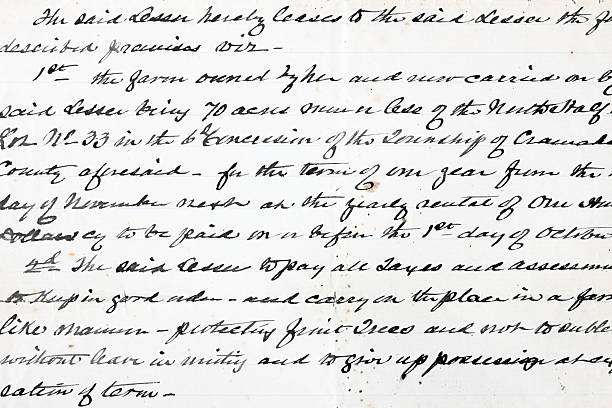 The said Lesser hereby leases to the said Lesser the
described premises viz —
1st the farm owned by her and now carried on by
said Lesser being 70 acres more or less of the North Half of
Lot No 33 in the 6th Concession of the Township of Cramah
County aforesaid — for the term of one year from the
day of November next at the yearly rental of One Hun
Dollars cy to be paid on or before the 1st day of October
2d The said Lesser to pay all Taxes and assessm
to Keep in good order — and carry on the place in a far
like manner — protecting fruit Trees and not to suble
without leave in writing and to give up possession at
sation of term —